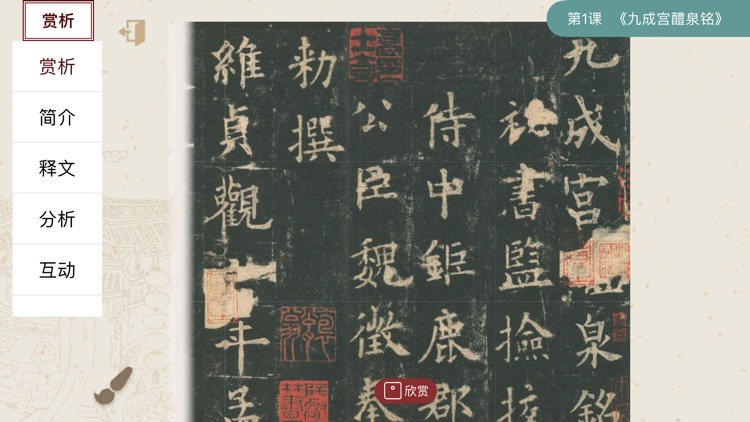 赏析
赏析
简介
释文
分析
互动
第1课 《九成宫醴泉铭》
九成宫泉銘
祕書監撿挍
侍中鉅鹿郡
公臣魏徵奉
勅撰
維貞觀年孟
欣赏